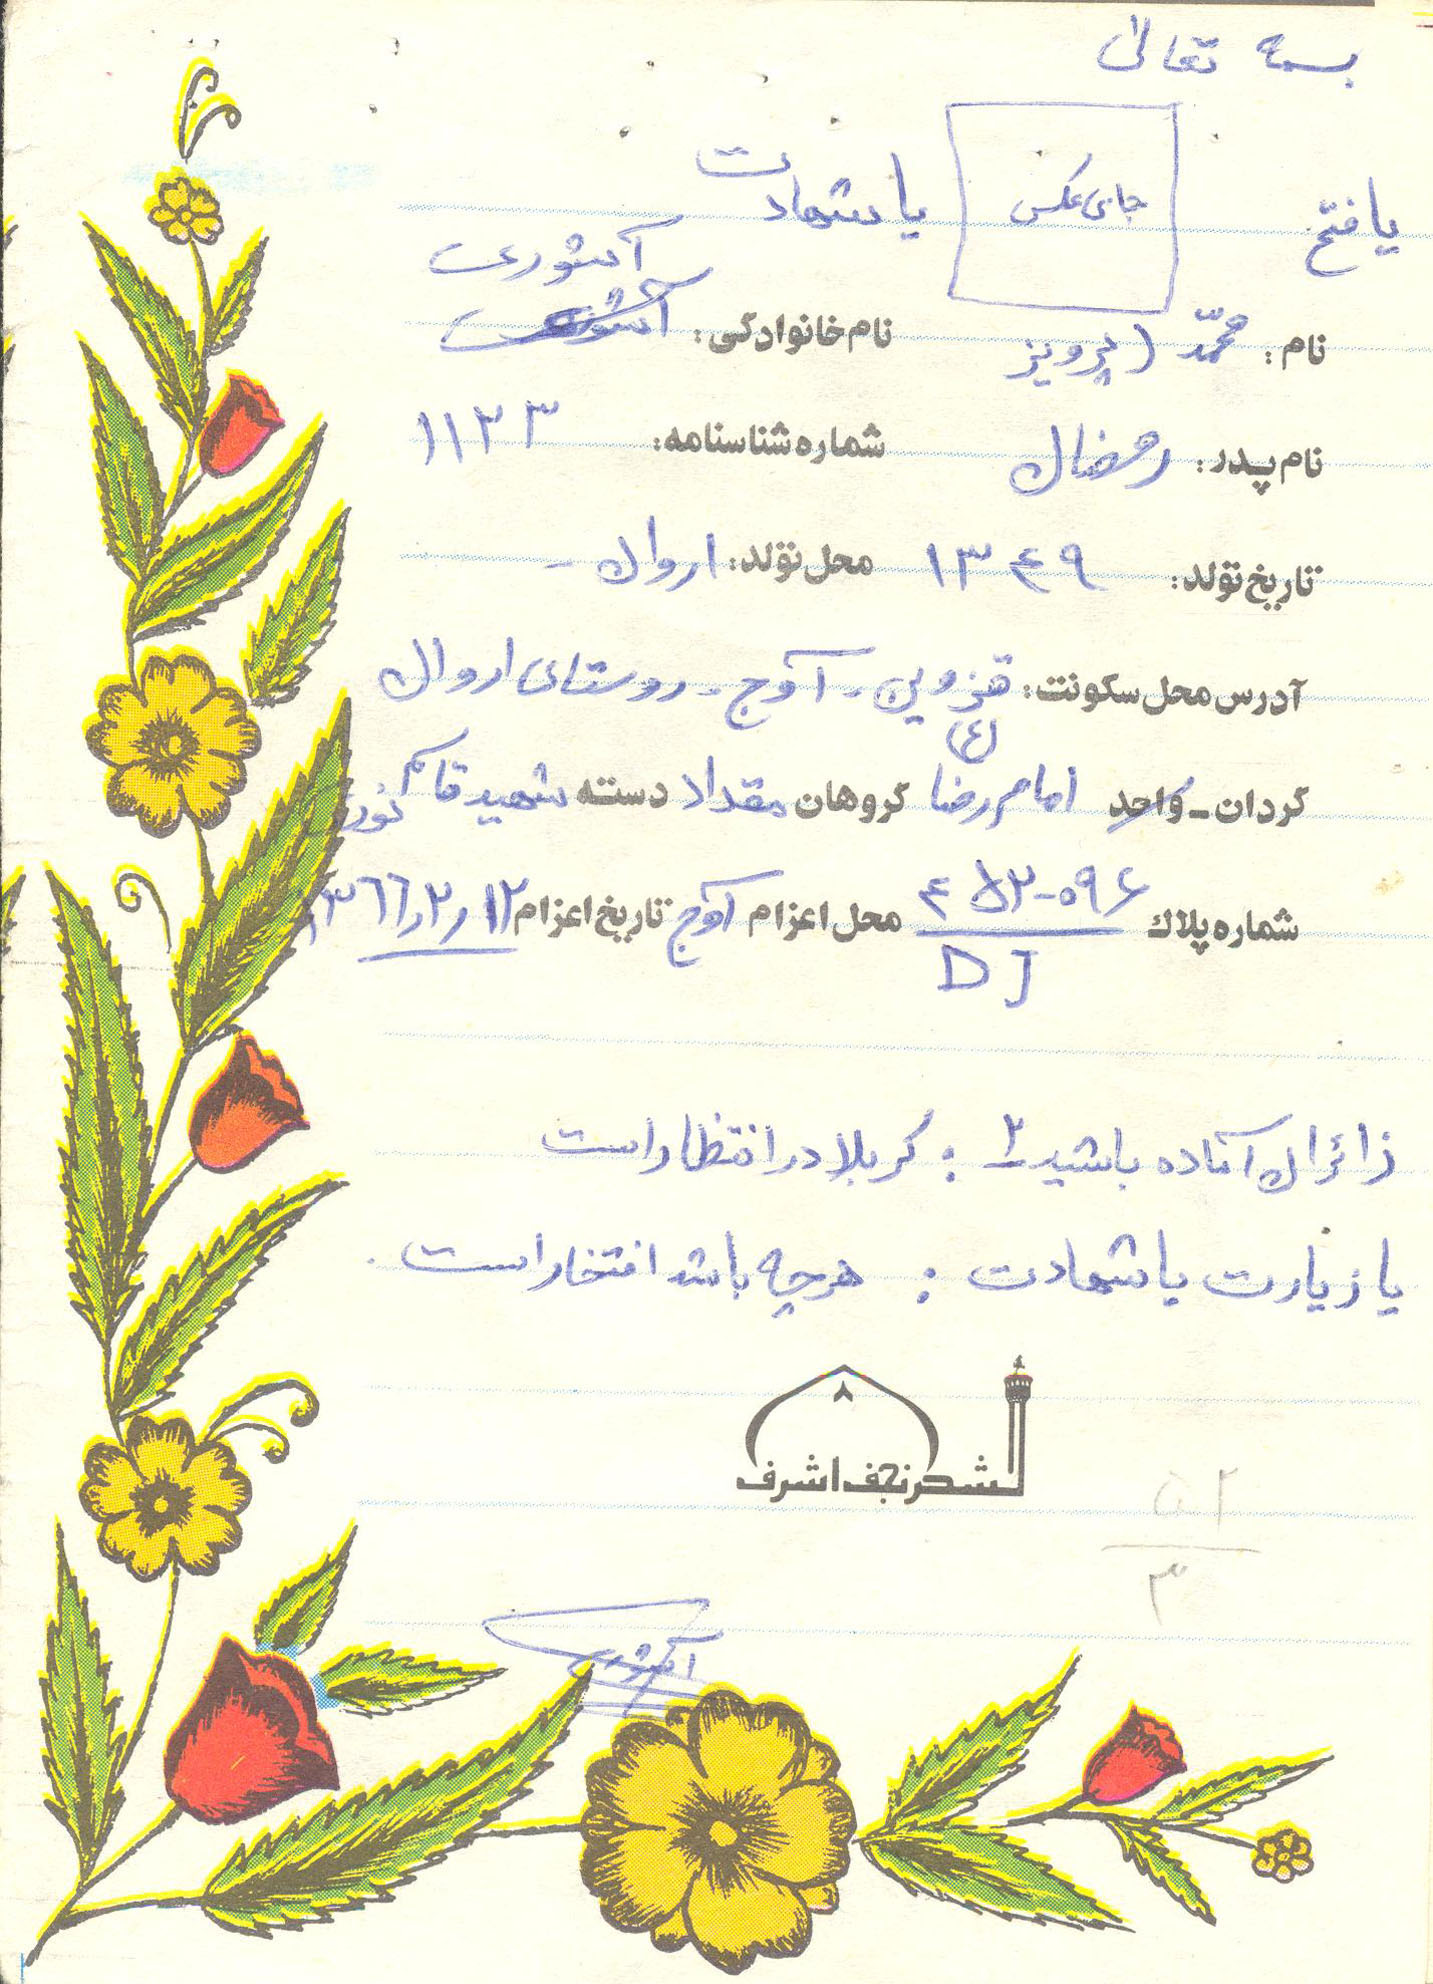 بسمه تعالی
یا فتح جای عکس یا شهادت
آشوری
نام: محمّد (پرویز نام خانوادگی:
نام پدر: رمضان شماره شناسنامه: ۱۱۲۳
تاریخ تولد: ۱۳۴۹ محل تولد: اروان -
آدرس محل سکونت: قزوین - آوج - روستای اروان
گردان - واحد امام رضا (ع) گروهان مقداد دسته شهید قاسم نوری
شماره پلاک ۵۹۶-۴۵۲ محل اعزام آوج تاریخ اعزام ۱۳۶۶/۲/۱۲
DJ
زائران آماده باشید : کربلا در انتظار است
یا زیارت یا شهادت : هرچه باشد افتخار است.
۸
لشکر نجف اشرف
۵۲
۳
آشوری